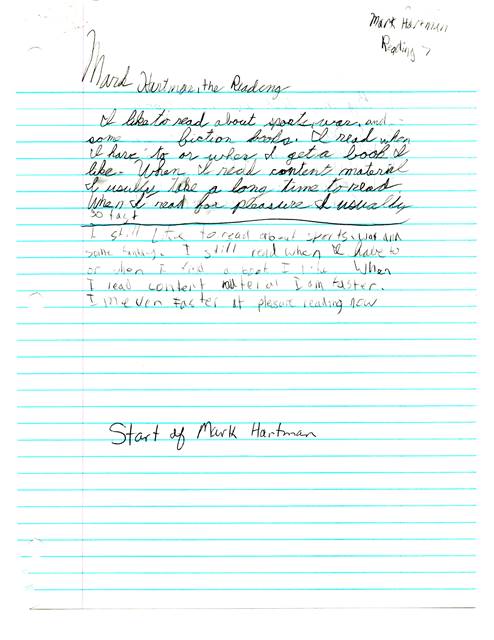 Mark Hartman
Reading 7
Mark Hartman, the Reading
I like to read about sports, war, and
some fiction books. I read when
I have to or when I get a book I
like. When I read content material
I usully take a long time to read
When I read for pleasure I usually
so fast
I still like to read about sports, war and
some fantasy. I still read when I have to
or when I find a book I like. When
I read content material I am faster.
I'm even faster at plesure reading now
Start of Mark Hartman